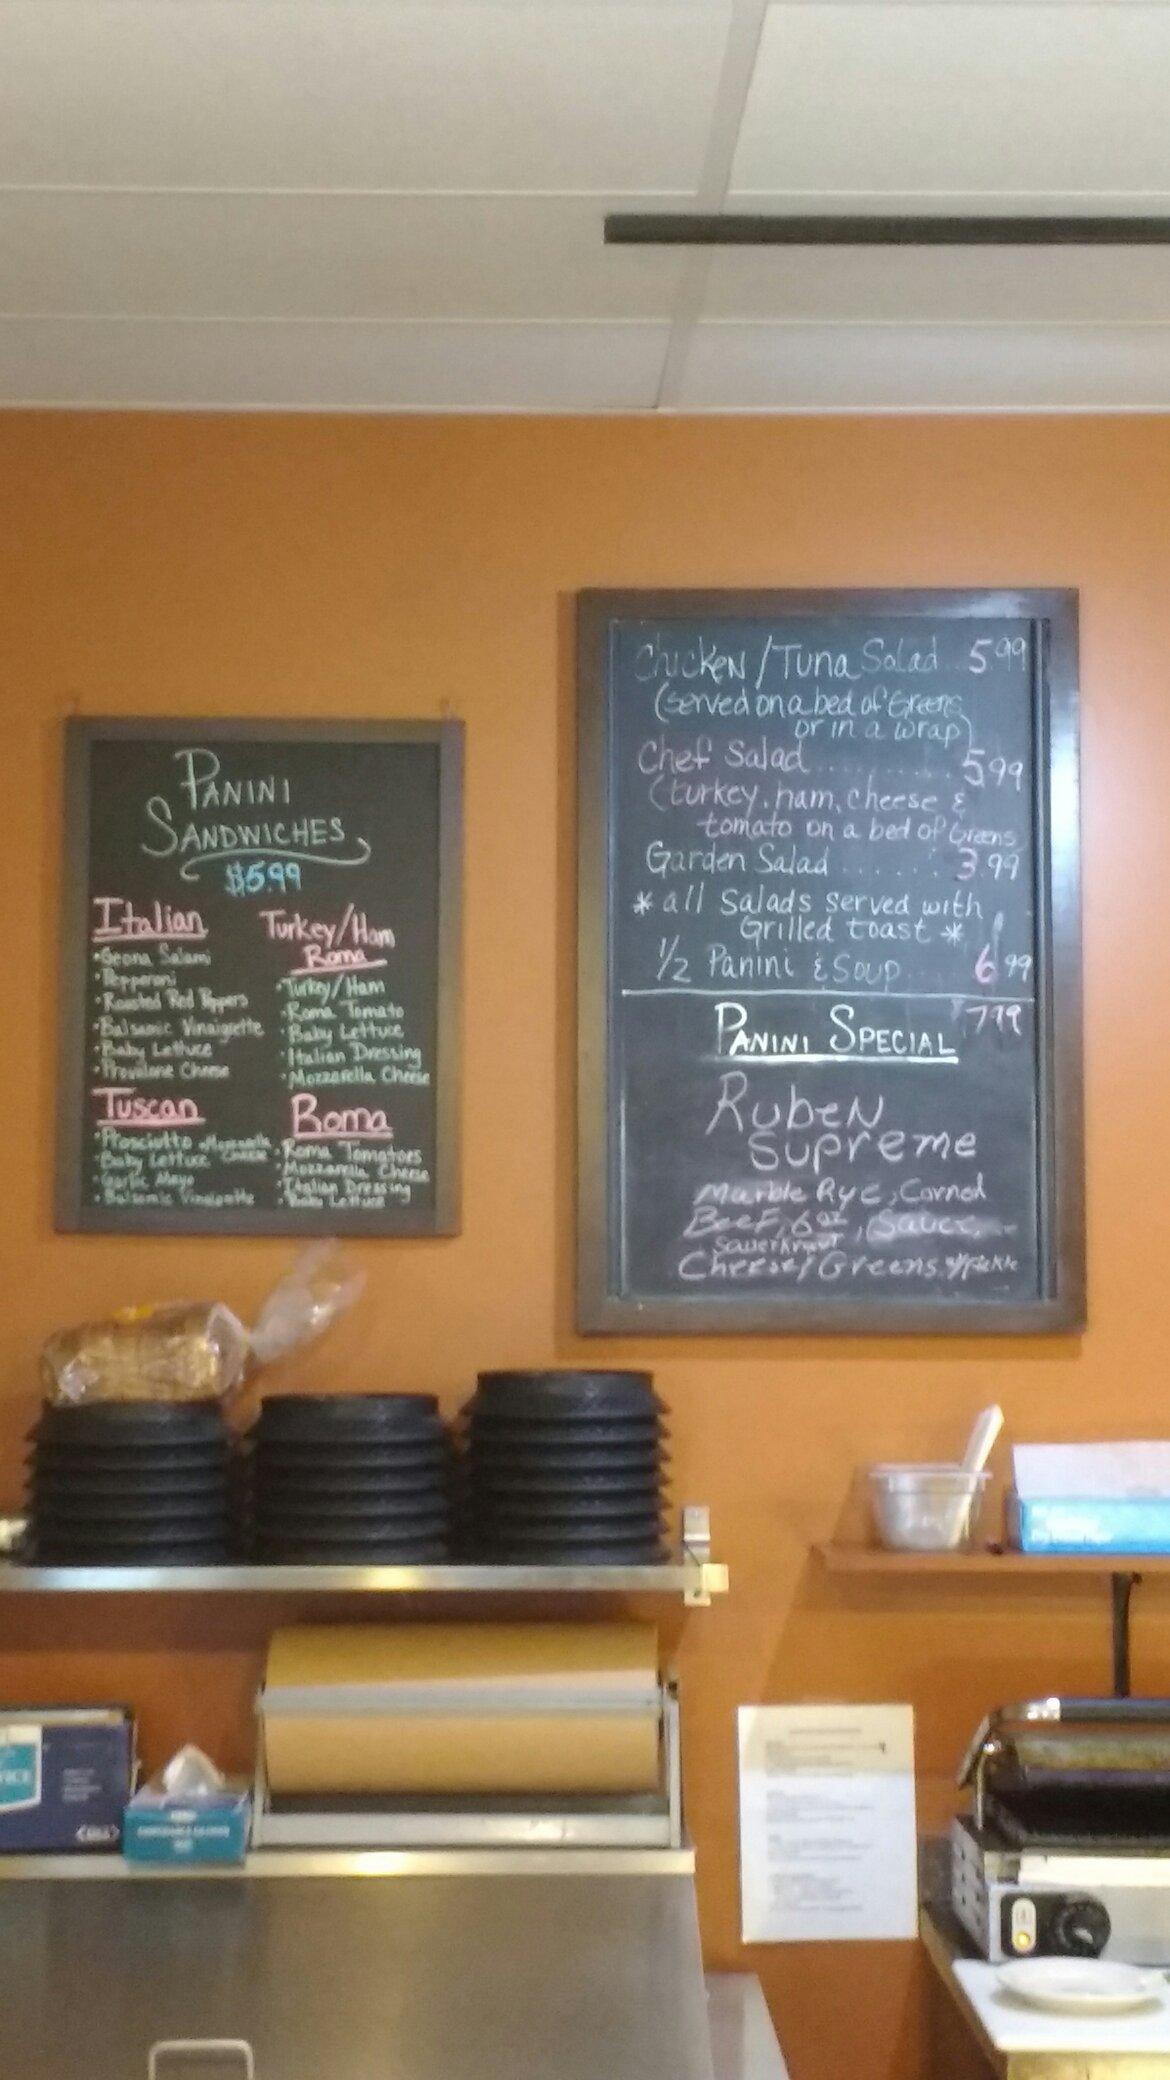 PANINI
SANDWICHES
$5.99
Italian
•Geona Salami
•Pepperoni
•Roasted Red Peppers
•Balsamic Vinaigrette
•Baby Lettuce
•Provalone Cheese
Turkey/Ham
Roma
•Turkey/Ham
•Roma Tomato
•Baby Lettuce
•Italian Dressing
•Mozzarella Cheese
Tuscan
•Prosciutto •Mozzarella
•Baby Lettuce Cheese
•Garlic Mayo
•Balsamic Vinaigrette
Roma
•Roma Tomatoes
•Mozzarella Cheese
•Italian Dressing
•Baby Lettuce
Chicken/Tuna Salad 5 99
(served on a bed of Greens
or in a wrap)
Chef Salad ........ 5 99
(turkey, ham, cheese &
tomato on a bed of Greens
Garden Salad ...... 3.99
* all Salads served with
Grilled toast *
1/2 Panini & Soup ... 6 99
PANINI SPECIAL 7 99
Ruben
Supreme
Marble Rye, Corned
Beef, 6oz, Sauce,
Sauerkraut
Cheese/Greens w/pickle